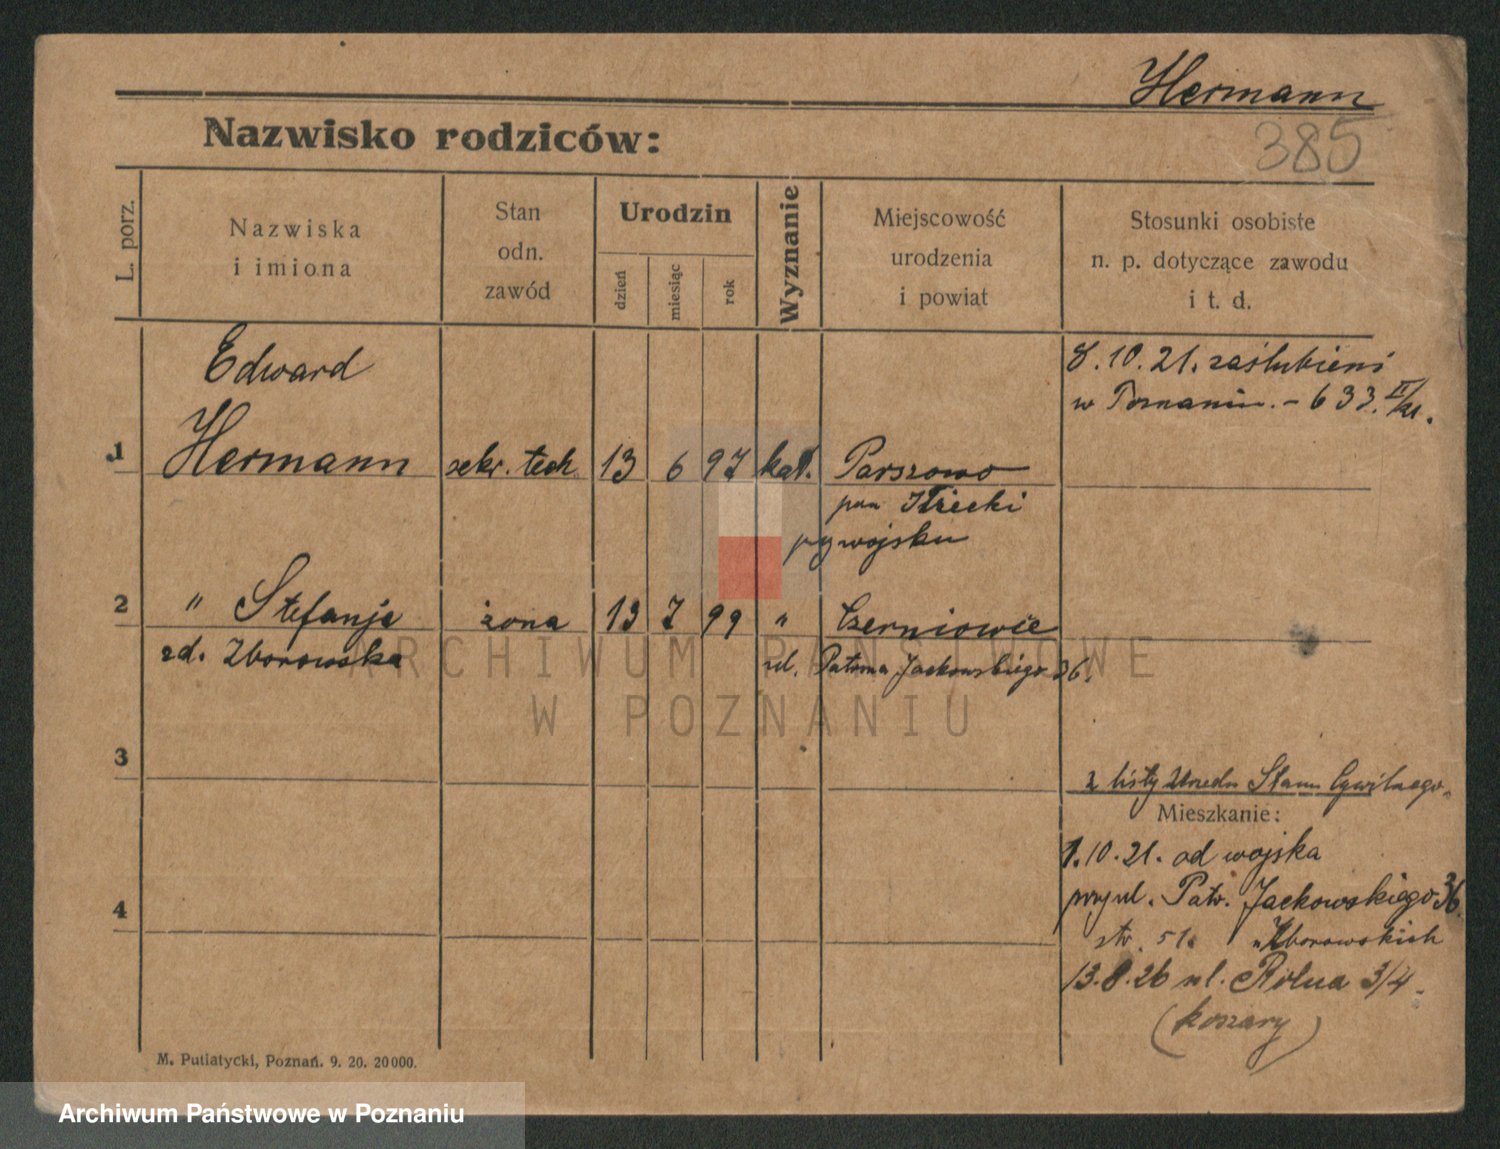 Hermann
385
Nazwisko rodziców:
L. porz.
Nazwiska
i imiona
Stan
odn.
zawód
Urodzin
dzień
miesiąc
rok
Wyznanie
Miejscowość
urodzenia
i powiat
Stosunki osobiste
n. p. dotyczące zawodu
i t. d.
8.10.21. zaślubieni
w Poznaniu. – 633. II/21.
Edward
1 Hermann sekr. tech. 13 6 97 kat. Parszowo
pow Iłżecki
przy wojsku
2 " Stefanja żona 13 7 99 " Czerniowie
zd. Zborowska ul. Patrona Jackowskiego 36.
ARCHIWUM PAŃSTWOWE
W POZNANIU
3
z listy Urzędu Stanu Cywilnego.
Mieszkanie:
1.10.21. od wojska
przy ul. Patr. Jackowskiego 36.
4
str. 51. "Zborowskich
13.8.26 ul. Rolna 3/4.
(koszary)
M. Putiatycki, Poznań. 9. 20. 20000.
Archiwum Państwowe w Poznaniu